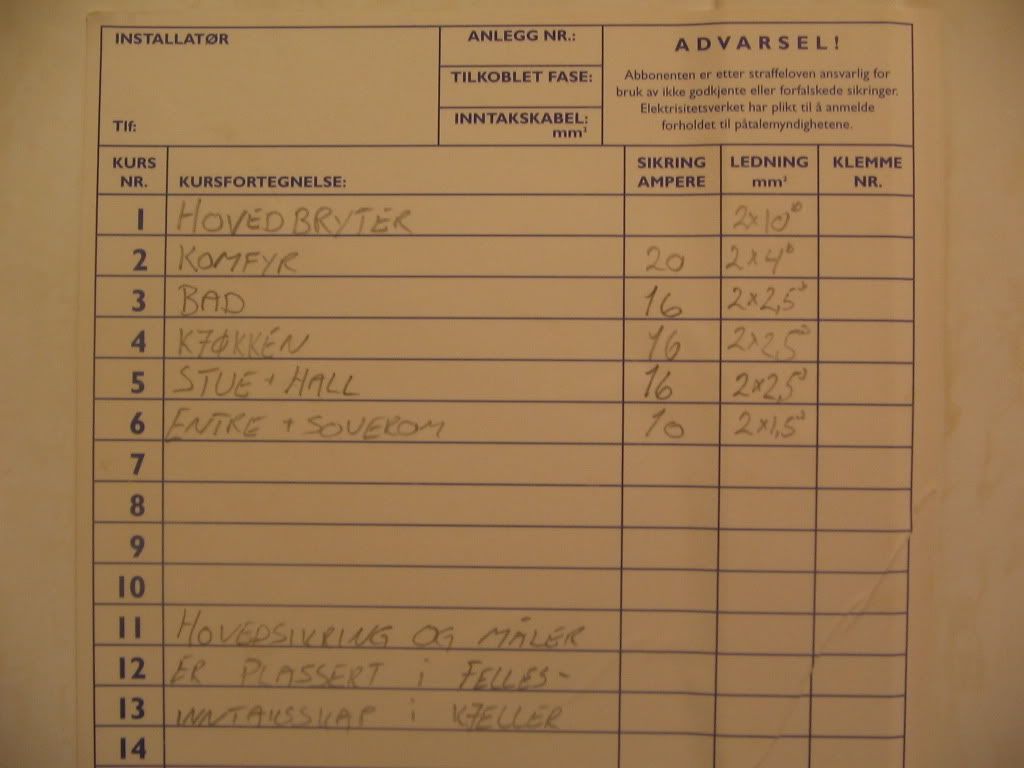 INSTALLATØR
Tlf:
ANLEGG NR.:
TILKOBLET FASE:
INNTAKSKABEL:
mm²
ADVARSEL!
Abbonenten er etter straffeloven ansvarlig for
bruk av ikke godkjente eller forfalskede sikringer.
Elektrisitetsverket har plikt til å anmelde
forholdet til påtalemyndighetene.
KURS NR. KURSFORTEGNELSE: SIKRING AMPERE LEDNING mm² KLEMME NR.
1 HOVEDBRYTER 2×10
2 KOMFYR 20 2×4
3 BAD 16 2×2,5
4 KJØKKEN 16 2×2,5
5 STUE + HALL 16 2×2,5
6 ENTRE + SOVEROM 10 2×1,5
7
8
9
10
11 HOVEDSIKRING OG MÅLER
12 ER PLASSERT i FELLES-
13 INNTAKSSKAP i KJELLER
14